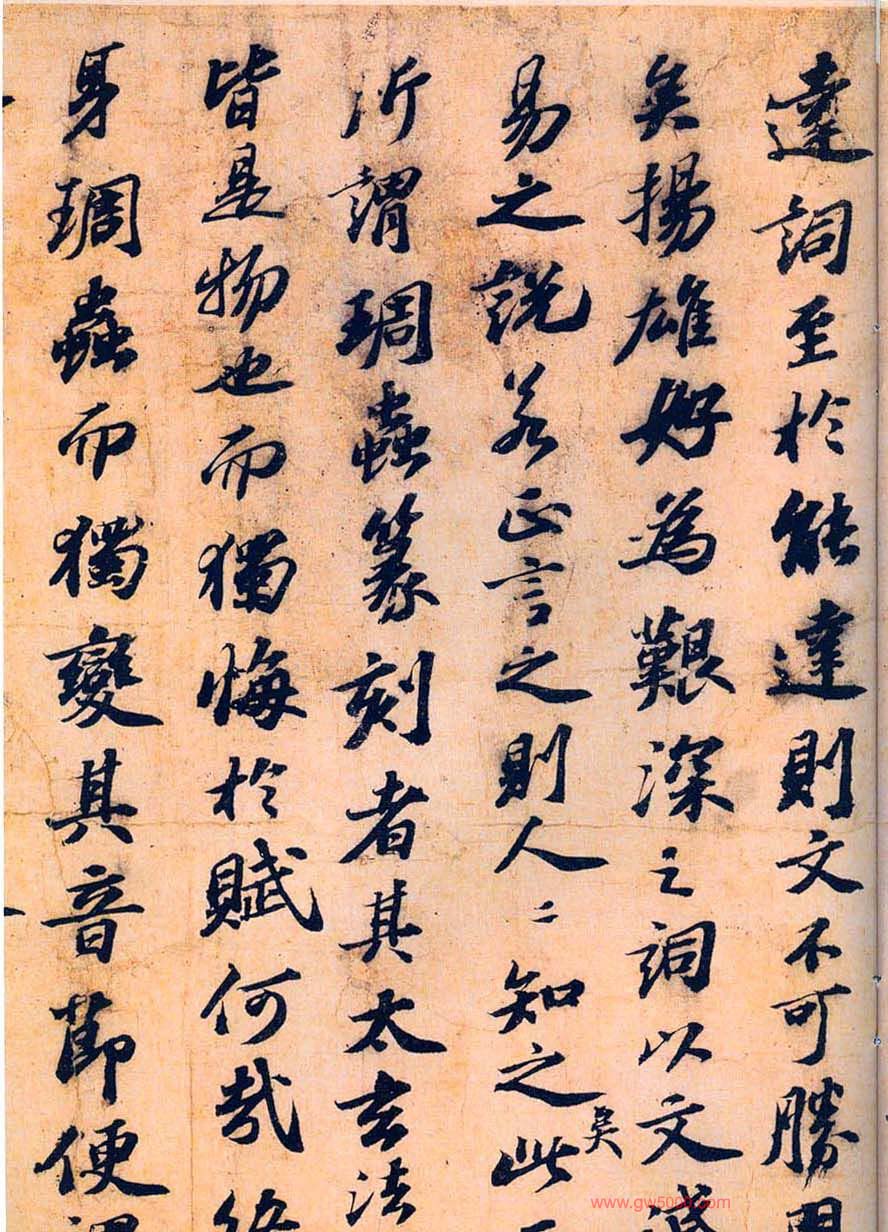 達詞至於能達則文不可勝
矣揚雄好為艱深之詞以文
易之說若正言之則人々知之矣此
所謂琱蟲篆刻者其太玄法
皆是物也而獨悔於賦何哉終
身琱蟲而獨變其音節便